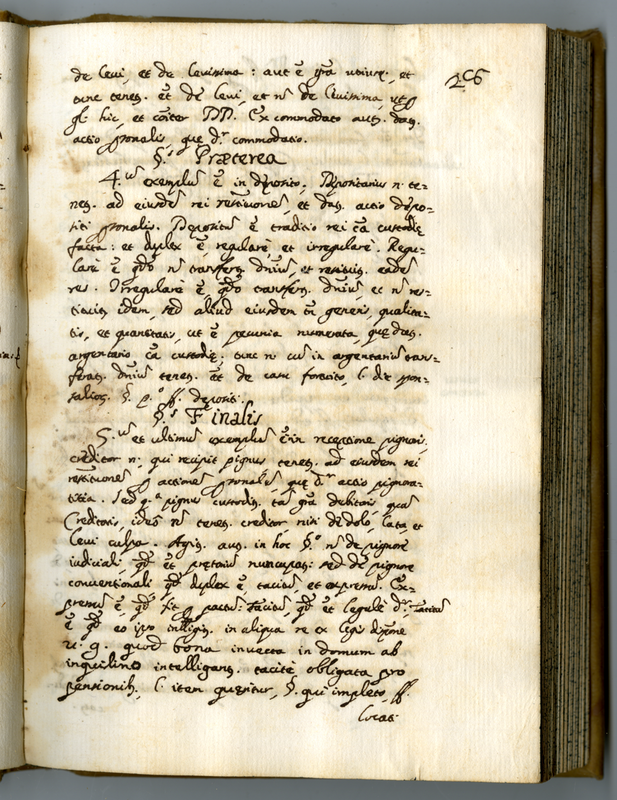 206
de levi, et de levissima: aut ē grã utriusq., et
tunc tenet. et de levi, et nō de levissima, ut
gl. hic, et cōiter DD. Ex commodato aut. dat.
actio p̃onalis, que d.r commodato.
§.s Præterea
4.us exemplũ ē in deposito. Depositarius n. te=
net. ad eiusdē rei restitutionē, et dat. actio depo=
siti p̃onalis. Depositũ ē traditio rei cã custodię
facta: et duplex ē, regularē et irregularē. Regu=
larē ē qdo nō transfert. dniũ, et restituit. eadē
res. Irregularē ē qdo transfert. dniũ, et nō res=
tituit. idem, sed aliud eiusdem tñ generis, qualita=
tis, et quantitatis, ut ē pecunia numerata, quę dat.
argentario cã custodię: tunc n. cũ in argentariũ tran=
ferat. dniũ tenet. et de casu fortuito, l. die spon=
saliorũ §. p.o ff. depositi.
§.s Finalis
5.us et ultimus exemplũ ē in receptione pignoris,
creditor n. qui recipit pignus tenet. ad eiusdem rei
restitutionē p actionē p̃onalē, quę d.r actio pignora=
titia. Sed q.a pignus custodit. tã grã debitoris, quã
Creditoris, ideo nō tenet. creditor nisi de dolo, lata, et
levi culpa. Agit. aut. in hoc §.o nō de pignore
iudiciali, qd et prætoriũ nuncupat: sed de pignore
conventionali qd duplex ē, tacitũ, et expressũ. Ex=
pressũ ē, qd fit p pactũ: Tacitũ, qd et legale d.r: tacitũ
ē qd eo ipso intelligit. in aliqua re ex legis dispõne
v. g. quod bona invecta in domum ab
inquilino intelligant. tacite obligata pro
pensionib., l. item quęritur, §. qui impleto, ff.
locati